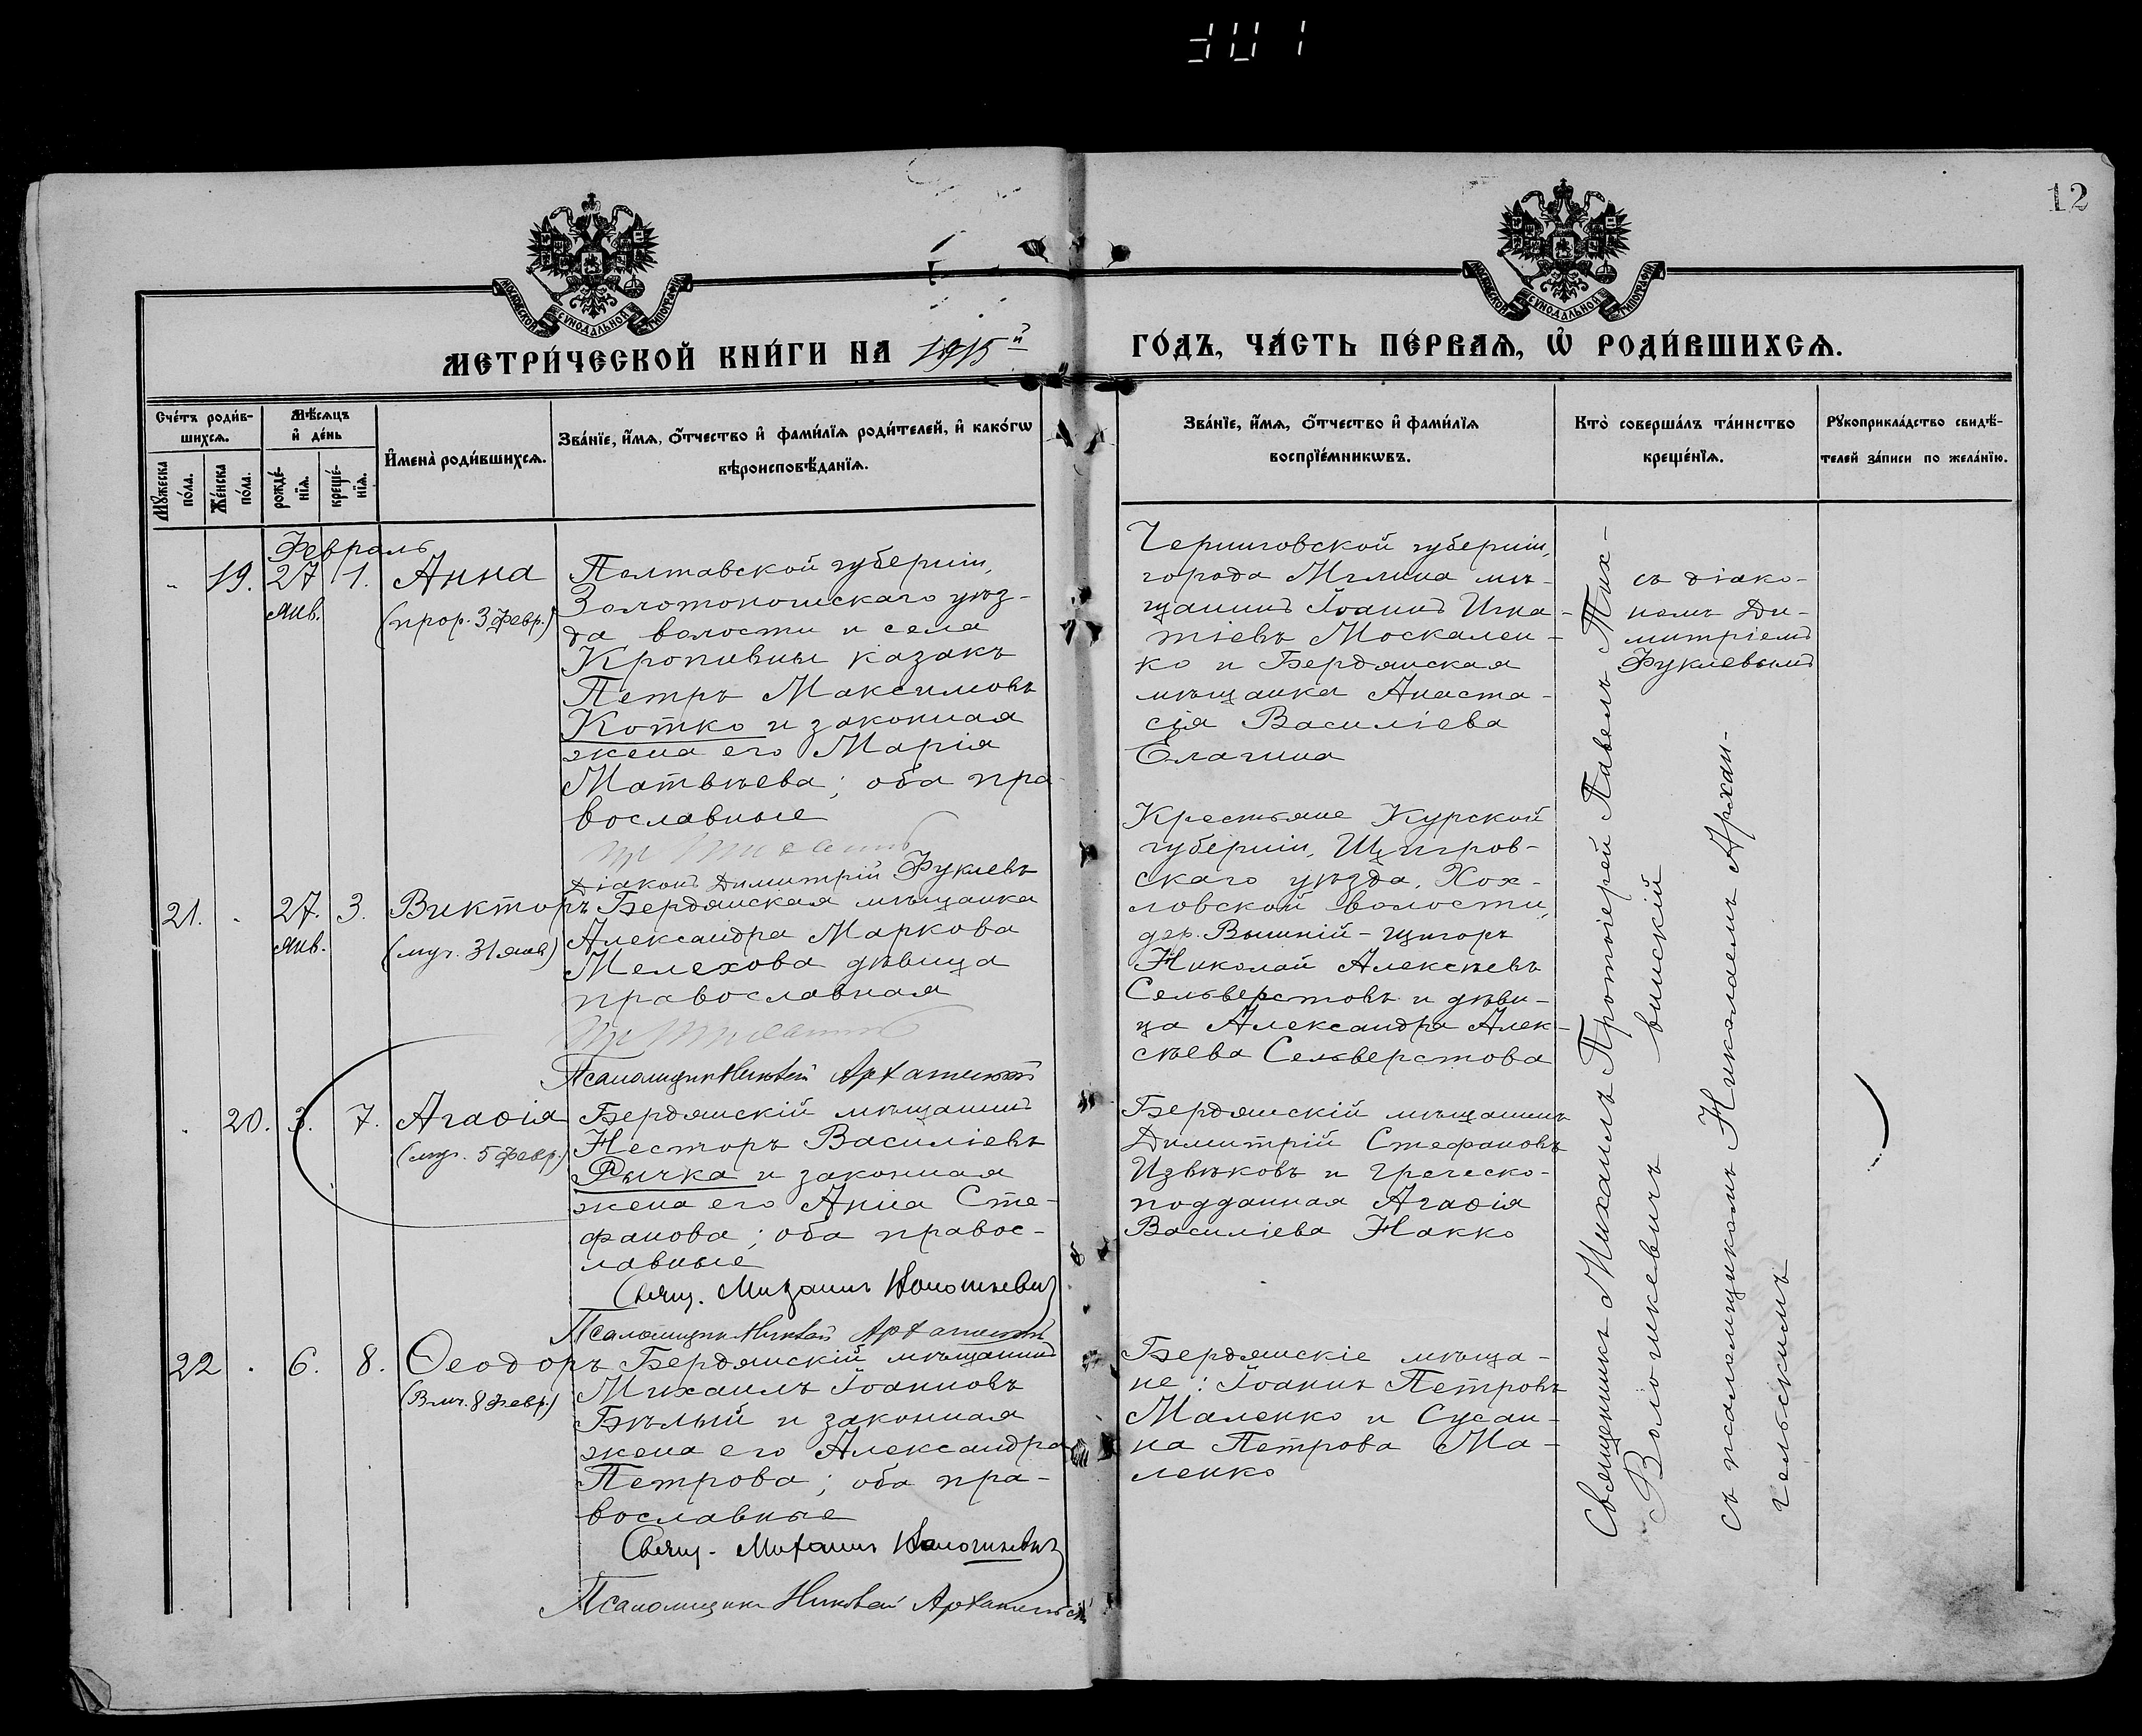 301
12
МОСКОВСКОЙ СУНОДАЛЬНОЙ ТИПОГРАФІИ
МОСКОВСКОЙ СУНОДАЛЬНОЙ ТИПОГРАФІИ
МЕТРИ́ЧЕСКОЙ КНИ́ГИ НА 1915й
ГО́ДЪ, ЧА́СТЬ ПЕ́РВАѦ, Ѡ҆ РОДИ́ВШИХСѦ.
Сче́тъ роди́в-
шихсѧ.
Мꙋжеска
по́ла.
Же́нска
по́ла.
Мѣ́сѧцъ
и҆ де́нь
рожде́-
нїѧ.
креще́-
нїѧ.
И҆мена̀ роди́вшихсѧ.
Зва́нїе, и҆́мѧ, ѻ҆́тчество и҆ фами́лїѧ роди́телей, и҆ како́гѡ
вѣроисповѣ́данїѧ.
Зва́нїе, и҆́мѧ, ѻ҆́тчество и҆ фами́лїѧ
воспрїе́мникѡвъ.
Кто̀ соверша́лъ та́инство
креще́нїѧ.
Рꙋкоприкла́дство свидѣ́-
телей за́писи по жела́нїю.
Февраль
- 19. 27 1. Анна
янв. (прор. 3 февр.)
Полтавской губерніи,
Золотоношскаго уѣз-
да волости и села
Кропивны казакъ
Петръ Максимовъ
Котко и законная
жена его Марія
Матвѣева; оба пра-
вославные
Діаконъ Димитрій Фуклевъ
Черниговской губерніи,
города Мглина мѣ-
щанинъ Іоаннъ Игна-
тіевъ Москален-
ко и Бердянская
мѣщанка Анаста-
сія Василіева
Елагина
21. - 27. 3. Викторъ
янв. (муч. 31 янв)
Бердянская мѣщанка
Александра Маркова
Мелехова дѣвица
православная
Псаломщикъ Николай Архангельскій
Крестьяне Курской
губерніи, Щигров-
скаго уѣзда, Хох-
ловской волости,
дер. Вышній-Щигоръ
Николай Алексѣевъ
Сельверстовъ и дѣви-
ца Александра Алек-
сѣева Сельверстова
- 20. 3. 7. Агаѳія
(муч. 5 февр.)
Бердянскій мѣщанинъ
Несторъ Василіевъ
Рычка и законная
жена его Анна Сте-
фанова; оба правос-
лавные
Свящ. Михаилъ Волочкевичъ
Псаломщикъ Николай Архангельскій
Бердянскій мѣщанинъ
Димитрій Стефановъ
Извѣковъ и греческо-
подданная Агаѳія
Василіева Накко
22 - 6. 8. Ѳеодоръ
(Вмч. 8 февр.)
Бердянскій мѣщанинъ
Михаилъ Іоанновъ
Бѣлый и законная
жена его Александра
Петрова; оба пра-
вославные
Свящ. Михаилъ Волочкевичъ
Псаломщикъ Николай Архангельскій
Бердянскіе мѣща-
не: Іоаннъ Петровъ
Маленко и Сусан-
на Петрова Ма-
ленко
Протоіерей Павелъ
винскій
съ діако-
номъ Ди-
митріемъ
Фуклевымъ
Священникъ Михаилъ
Волочкевичъ
съ псаломщикомъ Николаемъ Архан-
гельскимъ